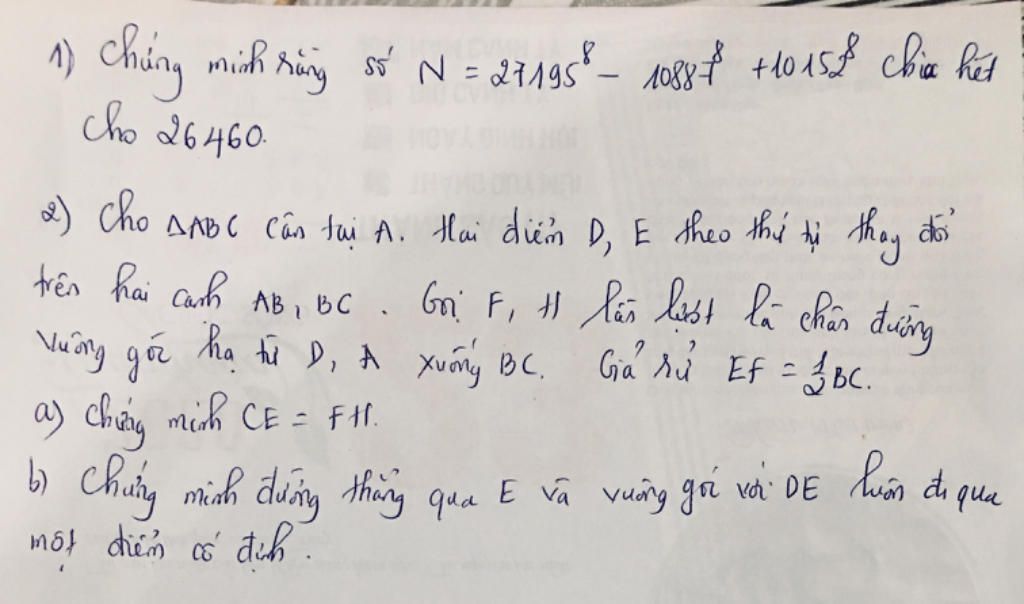 1) Chứng minh rằng số N = 27195⁸ − 10887⁸ + 10152⁸ chia hết
cho 26460.
2) Cho ΔABC cân tại A. Hai điểm D, E theo thứ tự thay đổi
trên hai cạnh AB, BC. Gọi F, H lần lượt là chân đường
vuông góc hạ từ D, A xuống BC. Giả sử EF = 1/2 BC.
a) Chứng minh CE = FH.
b) Chứng minh đường thẳng qua E và vuông góc với DE luôn đi qua
một điểm cố định.